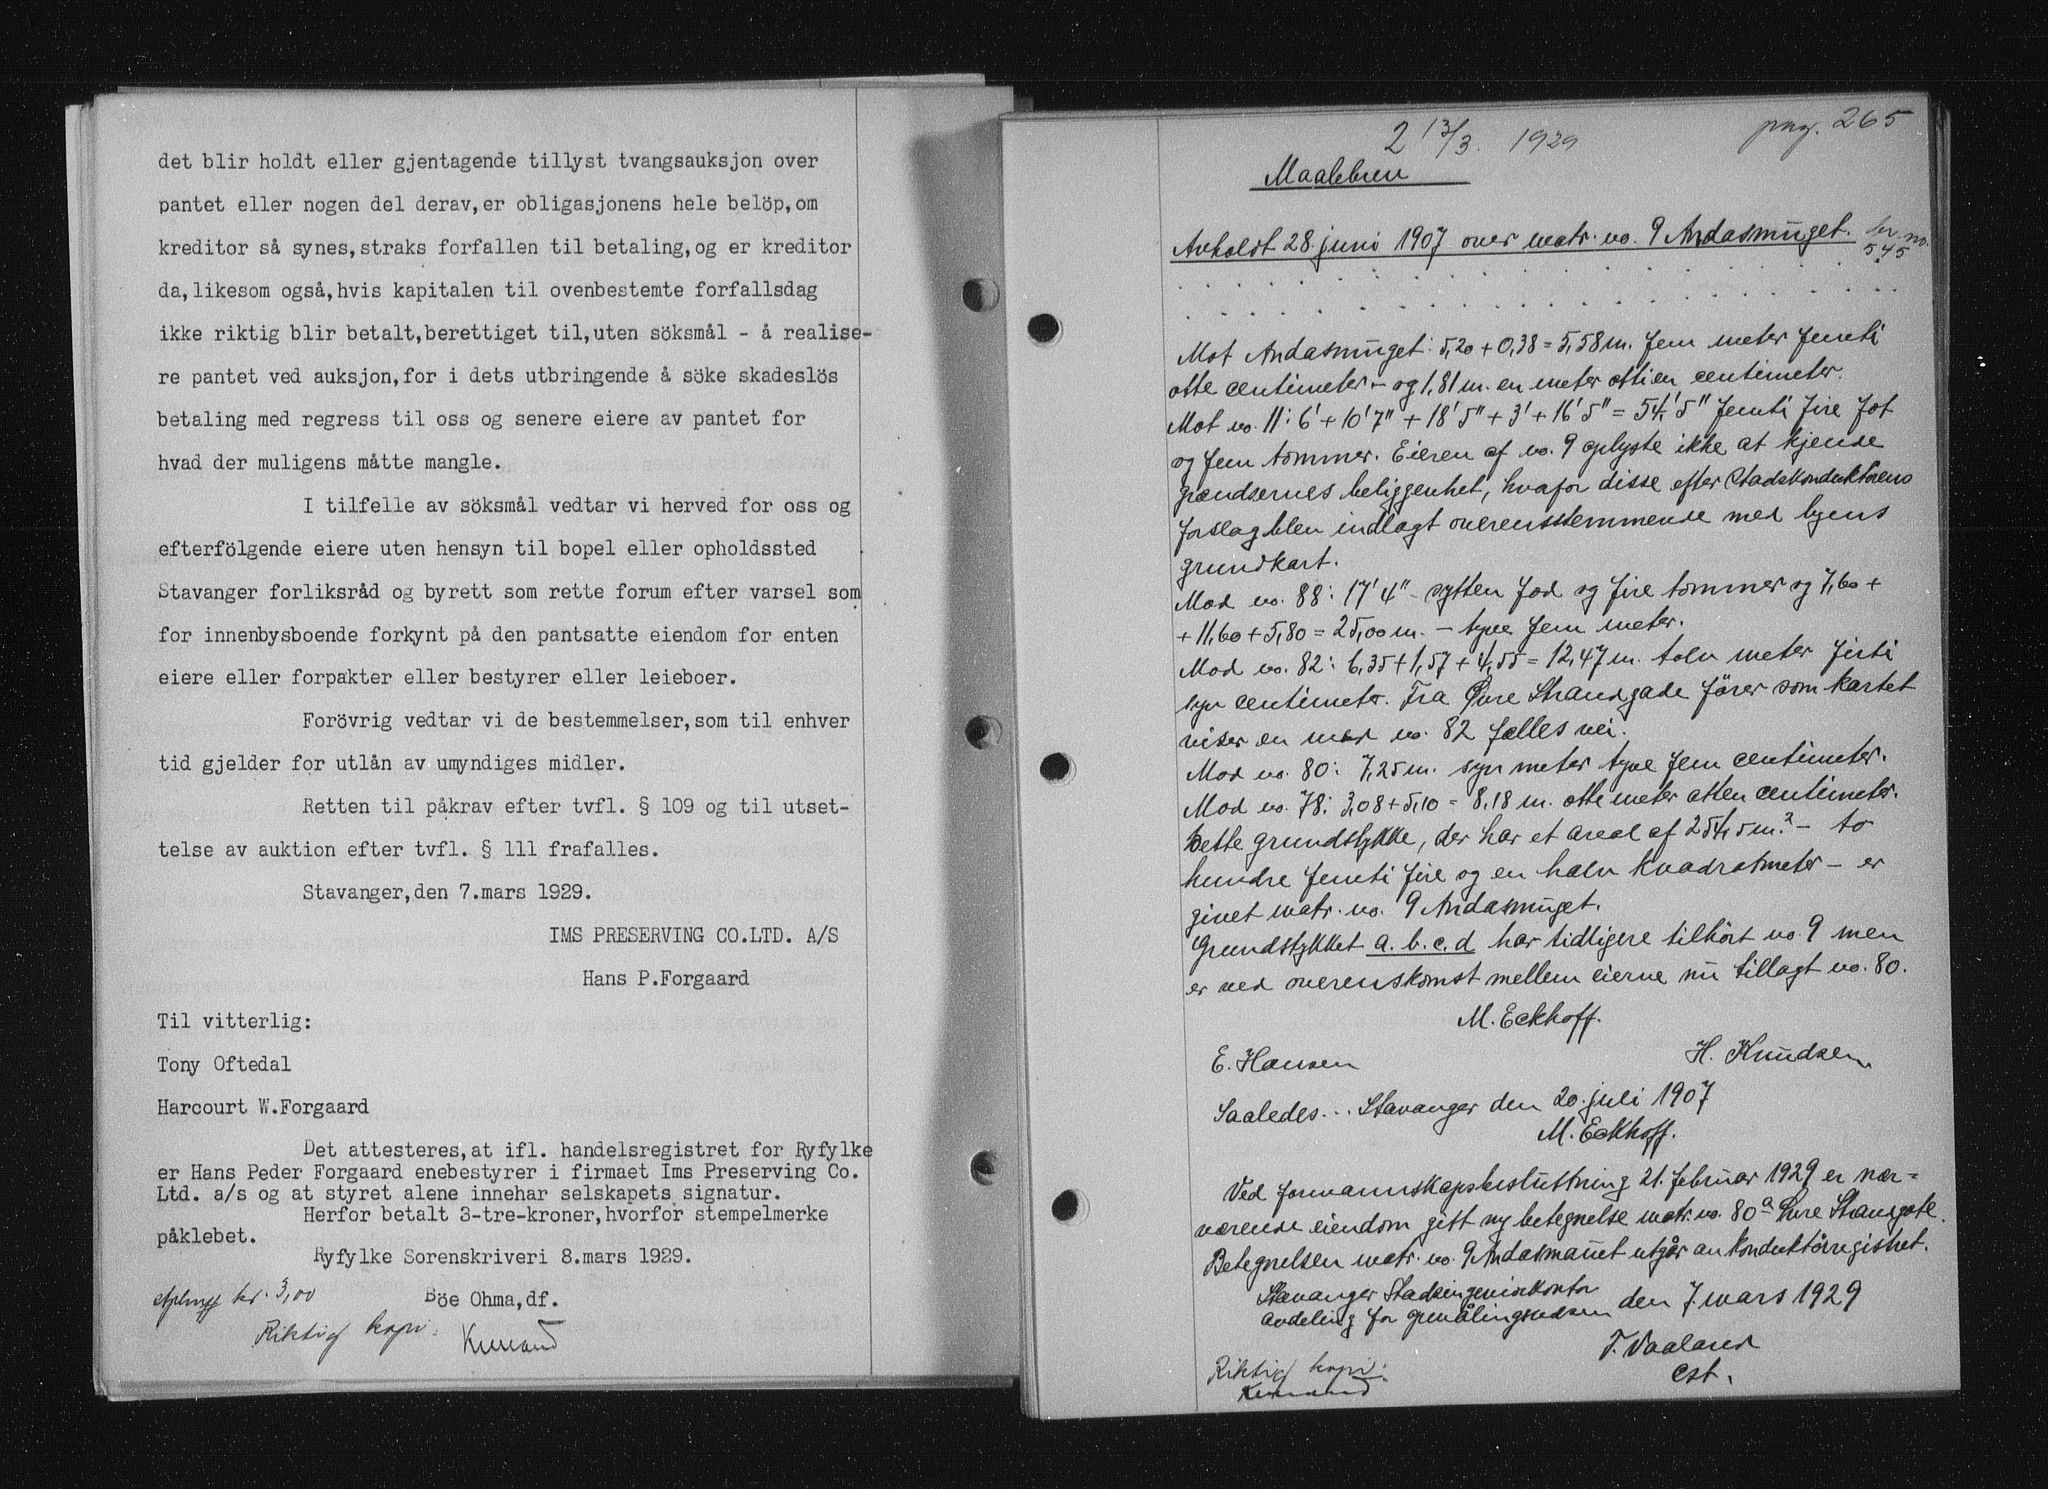 det blir holdt eller gjentagende tillyst tvangsauksjon over
pantet eller nogen del derav, er obligasjonens hele belöp, om
kreditor så synes, straks forfallen til betaling, og er kreditor
da, likesom også, hvis kapitalen til ovenbestemte forfallsdag
ikke riktig blir betalt, berettiget til, uten söksmål - å realise-
re pantet ved auksjon, for i dets utbringende å söke skadeslös
betaling med regress til oss og senere eiere av pantet for
hvad der muligens måtte mangle.
I tilfelle av söksmål vedtar vi herved for oss og
efterfölgende eiere uten hensyn til bopel eller opholdssted
Stavanger forliksråd og byrett som rette forum efter varsel som
for innenbysboende forkynt på den pantsatte eiendom for enten
eiere eller forpakter eller bestyrer eller leieboer.
Forövrig vedtar vi de bestemmelser, som til enhver
tid gjelder for utlån av umyndiges midler.
Retten til påkrav efter tvfl. § 109 og til utset-
telse av auktion efter tvfl. § 111 frafalles.
Stavanger, den 7. mars 1929.
IMS PRESERVING CO.LTD. A/S
Hans P. Forgaard
Til vitterlig:
Tony Oftedal
Harcourt W. Forgaard
Det attesteres, at ifl. handelsregistret for Ryfylke
er Hans Peder Forgaard enebestyrer i firmaet Ims Preserving Co.
Ltd. a/s og at styret alene innehar selskapets signatur.
Herfor betalt 3-tre-kroner, hvorfor stempelmerke
påklebet.
Ryfylke Sorenskriveri 8. mars 1929.
kr. 3,00
Böe Ohma, df.
Riktig kopi:
pag. 265
2 13/3. 1929
Maalebrev
Avholdt 28. juni 1907 over matr. no. 9 Andasmuget.
br. no.
545
Mot Andasmuget: 5,20 + 0,38 = 5,58 m. fem meter femti
otte centimeter – og 1,81 m. en meter otti en centimeter.
Mot no. 11: 6' + 10' 7" + 18' 5" + 3' + 16' 5" = 54,' 5" femti fire fot
og fem tommer. Eieren af no. 9 oplyste ikke at kjende
grændsernes beliggenhet, hvafor disse efter Stadskonduktörens
forslag blev indlagt overensstemmende med byens
grundkart.
Mod no. 88: 17' 4" – sytten fod og fire tommer og 7,60 +
+ 11,60 + 5,80 = 25,00 m. – tyve fem meter.
Mod no. 82: 6,35 + 1,57 + 4,55 = 12,47 m. tolv meter firti
syv centimeter. Fra Øvre Strandgade förer som kartet
viser en med no. 82 fælles vei.
Mod no. 80: 7,25 m. syv meter tyve fem centimeter.
Mod no. 78: 3,08 + 5,10 = 8,18 m. otte meter atten centimeter.
Dette grundstykke, der har et areal af 254,5 m.² – to
hundre femti fire og en halv kvadratmeter – er
givet matr. no. 9 Andasmuget.
Grundstykket a. b. c. d har tidligere tilhört no. 9 men
er ved overenskomst mellem eierne nu tillagt no. 80.
M. Eckhoff.
E. Hansen
H. Knudsen
Saaledes... Stavanger den 20. juli 1907
M. Eckhoff.
Ved formannskapsbesluttning 21. februar 1929 er nær=
værende eiendom gitt ny betegnelse matr. no. 80ª Øvre Strandgate.
Betegnelsen matr. no. 9 Andasmauet utgår av konduktörregistret.
Stavanger Stadsingeniörkontor
avdeling for opmålingsvesen den 7. mars 1929
T. Vaaland
cst.
Riktig kopi: